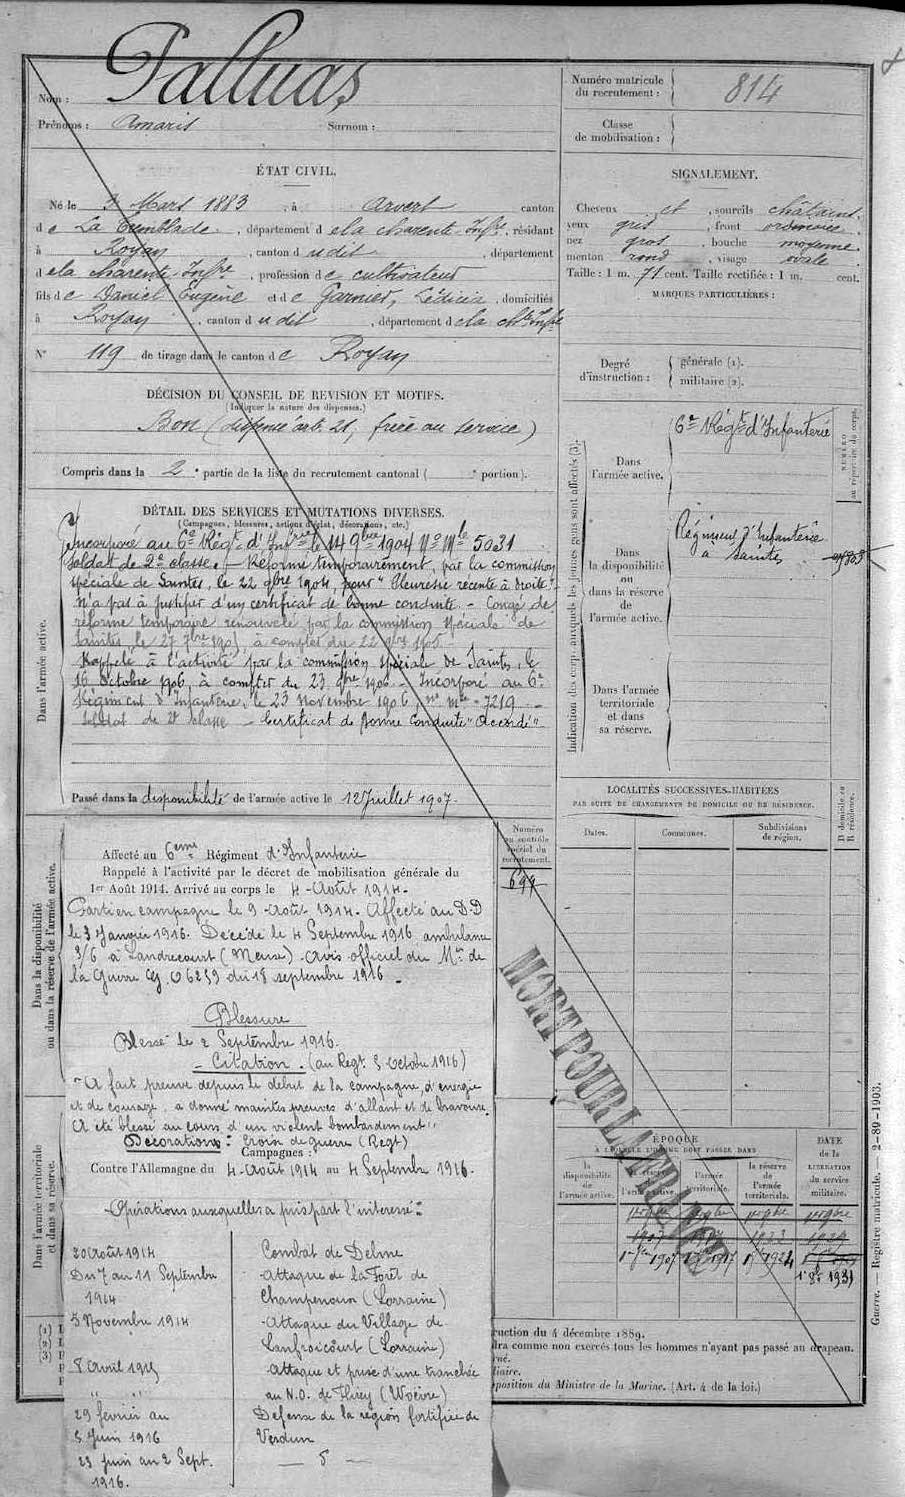 Nom : Palluas
Prénoms : Amaris Surnom :
Numéro matricule du recrutement : 814
Classe de mobilisation :
ÉTAT CIVIL.
Né le 3 Mars 1883, à Arvert canton
de La Tremblade, département de la Charente Infre, résidant
à Royan, canton dudit, département
de la Charente-Infre, profession de cultivateur
fils de Daniel Eugène et de Garnier, Lédicia, domiciliés
à Royan, canton dudit, département de la Chte Infre
N° 119 de tirage dans le canton de Royan
SIGNALEMENT.
Cheveux et, sourcils châtains
yeux gris, front ordinaire
nez gros, bouche moyenne
menton rond, visage ovale
Taille : 1 m. 71 cent. Taille rectifiée : 1 m. cent.
MARQUES PARTICULIÈRES :
Degré d'instruction :
générale (1).
militaire (2).
DÉCISION DU CONSEIL DE REVISION ET MOTIFS.
(Indiquer la nature des dispenses.)
Bon (dispensé art. 21, frère au service)
Compris dans la 2e partie de la liste du recrutement cantonal ( e portion).
DÉTAIL DES SERVICES ET MUTATIONS DIVERSES.
(Campagnes, blessures, actions d'éclat, décorations, etc.)
Dans l'armée active.
Incorporé au 6e Régt d'Infrie le 14 9bre 1904 No Mle 5031
Soldat de 2e classe. - Réformé temporairement, par la commission
spéciale de Saintes, le 22 9bre 1904, pour "Pleurésie récente à droite".
N'a pas à justifier d'un certificat de bonne conduite. - Congé de
réforme temporaire renouvelé par la commission spéciale de
Saintes, le 27 7bre 1905, à compter du 22 9bre 1905.
Rappelé à l'activité par la commission spéciale de Saintes, le
16 octobre 1906, à compter du 23 9bre 1906. - Incorporé au 6e
Régiment d'Infanterie, le 23 novembre 1906, no mle 7219.
Soldat de 2e classe - Certificat de bonne Conduite "Accordé"
Passé dans la disponibilité de l'armée active le 12 Juillet 1907.
Indication des corps auxquels les jeunes gens sont affectés (3).
NUMÉRO au répertoire du corps.
Dans l'armée active.
6e Régt d'Infanterie
Dans la disponibilité ou dans la réserve de l'armée active.
Régiment d'Infanterie
à Saintes
Dans l'armée territoriale et dans sa réserve.
LOCALITÉS SUCCESSIVES HABITÉES
PAR SUITE DE CHANGEMENTS DE DOMICILE OU DE RÉSIDENCE.
Dates. Communes. Subdivisions de région. D domicile ou R résidence.
Dans la disponibilité ou dans la réserve de l'armée active.
Numéro au contrôle spécial du recrutement.
699
Affecté au 6eme Régiment d'Infanterie
Rappelé à l'activité par le décret de mobilisation générale du
1er Août 1914. Arrivé au corps le 4 Août 1914.
Parti en campagne le 9 Août 1914. Affecté au D.D
le 3 Janvier 1916. Décédé le 4 Septembre 1916, ambulance
3/6 à Landrecourt (Meuse). Avis officiel du Mre de
la Guerre 06259 du 18 septembre 1916.
Blessure
Blessé le 2 Septembre 1916.
- Citation. (au Regt. 5 Octobre 1916)
"A fait preuve depuis le début de la campagne, d'énergie
et de courage, a donné maintes preuves d'allant et de bravoure.
A été blessé au cours d'un violent bombardement"
Décorations : Croix de guerre (Regt)
Campagnes :
Contre l'Allemagne du 4 Août 1914 au 4 Septembre 1916.
Opérations auxquelles a pris part l'intéressé :
20 Août 1914 Combat de Delme
Du 7 au 11 Septembre 1914 Attaque de la Forêt de Champenoux (Lorraine)
5 Novembre 1914 Attaque du Village de Lanfroicourt (Lorraine)
8 Avril 1915 Attaque et prise d'une tranchée
" " au N.O. de Flirey (Woëvre)
29 février au 5 Juin 1916 Défense de la région fortifiée de Verdun
23 juin au 2 Sept. 1916.
5
MORT POUR LA FRANCE
Dans l'armée territoriale et dans sa réserve.
ÉPOQUE
À LAQUELLE L'HOMME DOIT PASSER DANS
la disponibilité de l'armée active.
l'armée territoriale.
la réserve de l'armée territoriale.
DATE de la LIBÉRATION du service militaire.
(1)
(2)
(3)
ruction du 4 décembre 1889.
dra comme non exercés tous les hommes n'ayant pas passé au drapeau.
position du Ministre de la Marine. (Art. 4 de la loi.)
Guerre. — Registre matricule. — 2-89-1903.